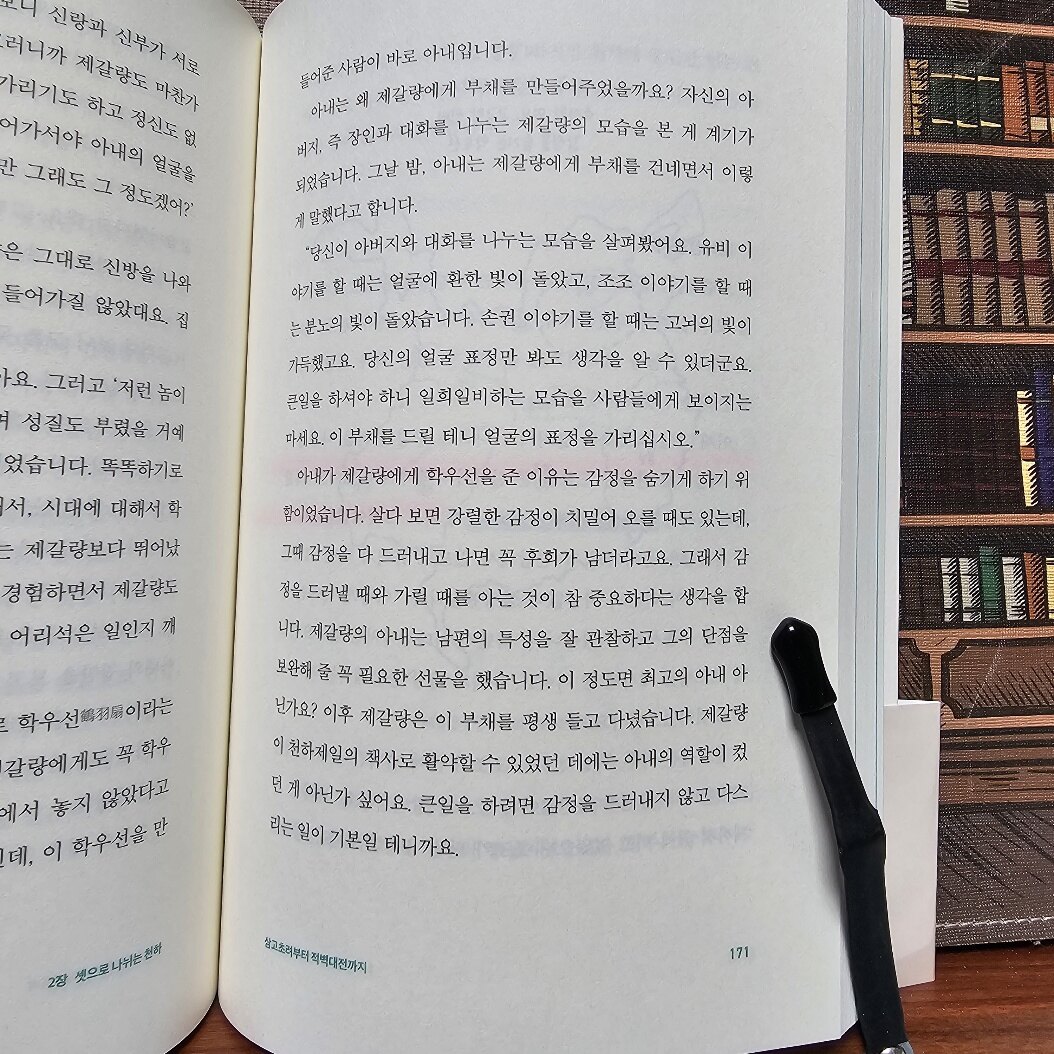 보니 신랑과 신부가 서로
그러니까 제갈량도 마찬가
가리기도 하고 정신도 없
어가서야 아내의 얼굴을
만 그래도 그 정도겠어?'
은 그대로 신방을 나와
들어가질 않았대요. 집
아요. 그러고 '저런 놈이
며 성질도 부렸을 거예
었습니다. 똑똑하기로
서, 시대에 대해서 학
는 제갈량보다 뛰어났
경험하면서 제갈량도
어리석은 일인지 깨
로 학우선鶴羽扇이라는
갈량에게도 꼭 학우
에서 놓지 않았다고
데, 이 학우선을 만
2장 셋으로 나뉘는 천하
들어준 사람이 바로 아내입니다.
아내는 왜 제갈량에게 부채를 만들어주었을까요? 자신의 아
버지, 즉 장인과 대화를 나누는 제갈량의 모습을 본 게 계기가
되었습니다. 그날 밤, 아내는 제갈량에게 부채를 건네면서 이렇
게 말했다고 합니다.
"당신이 아버지와 대화를 나누는 모습을 살펴봤어요. 유비 이
야기를 할 때는 얼굴에 환한 빛이 돌았고, 조조 이야기를 할 때
는 분노의 빛이 돌았습니다. 손권 이야기를 할 때는 고뇌의 빛이
가득했고요. 당신의 얼굴 표정만 봐도 생각을 알 수 있더군요.
큰일을 하셔야 하니 일희일비하는 모습을 사람들에게 보이지는
마세요. 이 부채를 드릴 테니 얼굴의 표정을 가리십시오."
아내가 제갈량에게 학우선을 준 이유는 감정을 숨기게 하기 위
함이었습니다. 살다 보면 강렬한 감정이 치밀어 오를 때도 있는데,
그때 감정을 다 드러내고 나면 꼭 후회가 남더라고요. 그래서 감
정을 드러낼 때와 가릴 때를 아는 것이 참 중요하다는 생각을 합
니다. 제갈량의 아내는 남편의 특성을 잘 관찰하고 그의 단점을
보완해 줄 꼭 필요한 선물을 했습니다. 이 정도면 최고의 아내 아
닌가요? 이후 제갈량은 이 부채를 평생 들고 다녔습니다. 제갈량
이 천하제일의 책사로 활약할 수 있었던 데에는 아내의 역할이 컸
던 게 아닌가 싶어요. 큰일을 하려면 감정을 드러내지 않고 다스
리는 일이 기본일 테니까요.
삼고초려부터 적벽대전까지
171